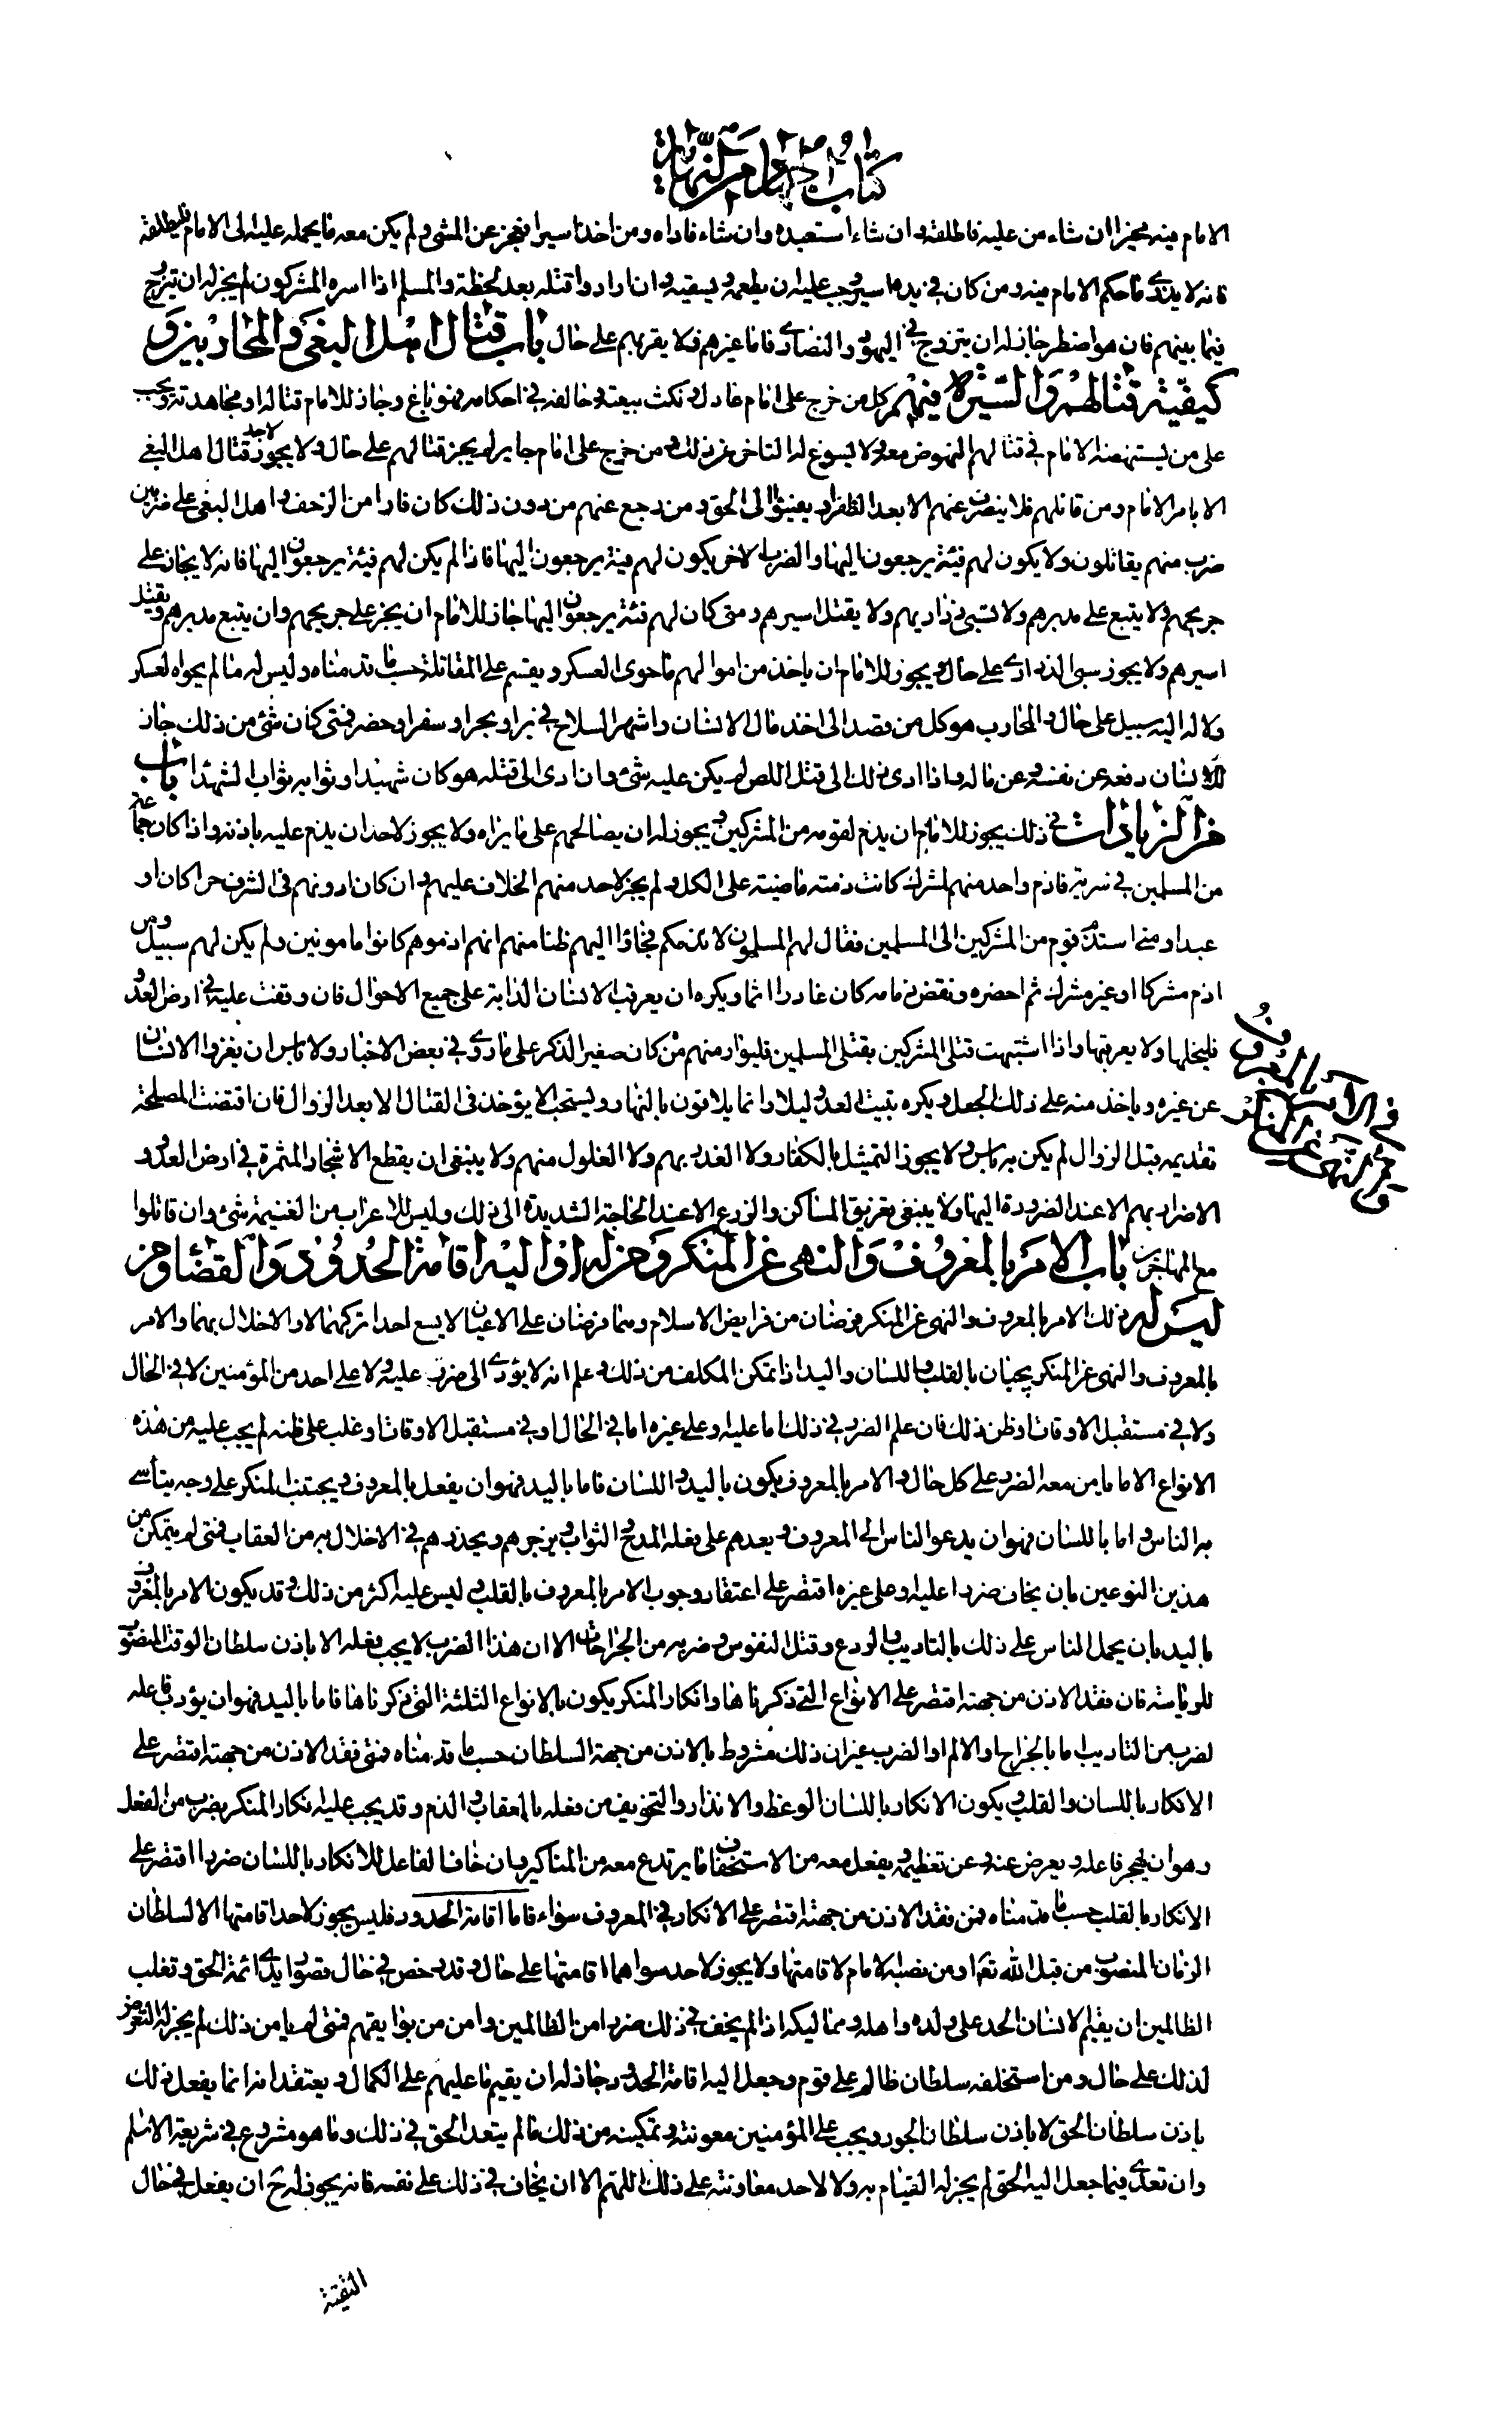 كتاب الجهاد من النهاية
الامام فيه مخيرا ان شاء من عليه فاطلقه وان شاء استعبده وان شاء فاداه ومن اخذ اسيرا فعجز عن المشى ولم يكن معه ما يحمله عليه الى الامام فليطلقه
فانه لا يدرى ما حكم الامام فيه ومن كان فى يده اسير وجب عليه ان يطعمه ويسقيه وان اراد واقتله بعد لحظة والمسلم اذا اسره المشركون لم يجز له ان يتزوج
فيما بينهم فان هو اضطر جاز له ان يتزوج فى اليهود والنصارى فاما غيرهم فلا يقربهم على حال باب قتال اهل البغى والمحاربين و
كيفية قتالهم والسيرة فيهم كل من خرج على امام عادل ونكث بيعته وخالفه فى احكامه فهو باغ وجاز للامام قتاله ومجاهدته ويجب
على من يستنهضه الامام فى قتالهم النهوض معه ولا يسوغ له التاخر عن ذلك ومن خرج على امام جاير لم يجز قتالهم على حال ولا يجوز لاحد قتال اهل البغى
الا بامر الامام ومن قاتلهم فلا ينصرف عنهم الا بعد الظفر او يفيئوا الى الحق ومن رجع عنهم من دون ذلك كان فارا من الزحف واهل البغى على ضربين
ضرب منهم يقاتلون ولا يكون لهم فيئة يرجعون اليها والضرب الاخر يكون لهم فيئة يرجعون اليها فاذا لم يكن لهم فيئة يرجعون اليها فانه لا يجاز على
جريحهم ولا يتبع على مدبرهم ولا تسبى ذراريهم ولا يقتل اسيرهم ومتى كان لهم فئة يرجعون اليها جاز للامام ان يجز على جريحهم وان يتبع مدبرهم ويقتل
اسيرهم ولا يجوز سبى الذرارى على حال ويجوز للامام ان ياخذ من اموالهم ما حوى العسكر ويقسم على المقاتلة حسب ما قدمناه وليس له ما لم يحوه العسكر
ولا له اليه سبيل على حال والمحارب هو كل من قصد الى اخذ مال الانسان واشهر السلاح فى بر او بحر او سفر او حضر فمتى كان شئ من ذلك جاز
للانسان دفعه عن نفسه وعن ماله واذا ادى ذلك الى قتل اللص لم يكن عليه شئ وان ادى الى قتله هو كان شهيدا وثوابه ثواب الشهداء باب
من الزيادات فى ذلك يجوز للامام ان يذم لقوم من المشركين ويجوز له ان يصالحهم على ما يراه ولا يجوز لاحد ان يذم عليه باذنه واذا كان جماعة
من المسلمين فى سرية فاذم واحد منهم لمشرك كانت ذمته ماضية على الكل ولم يجز لاحد منهم الخلاف عليهم وان كان ادونهم فى الشرف حرا كان او
عبدا ومتى استذم قوم من المشركين الى المسلمين فقال لهم المسلمون لا نذمكم فجاؤا اليهم ظنا منهم انهم اذموهم كانوا مامونين ولم يكن لهم سبيل ومن
اذم مشركا او غير مشرك ثم احضره ونقض ذمامه كان غادرا اثما ويكره ان يعرقب الانسان الدابة على جميع الاحوال فان وقفت عليه فى ارض العدو
فليخلها ولا يعرقبها واذا اشتبهت قتلى المشركين بقتلى المسلمين فليوار منهم من كان صغير الذكر على ما روى فى بعض الاخبار ولا باس ان يغزوا الانسان
عن غيره وياخذ منه على ذلك الجعل ويكره تبيت العدو ليلا وانما يلاقون بالنهار ويستحب الا يؤخذ فى القتال الا بعد الزوال فان اقتضت المصلحة
فى الامر بالمعروف
والنهى عن المنكر
تقديمه قبل الزوال لم يكن به باس ولا يجوز التمثيل بالكفار ولا الغدر بهم ولا الغلول منهم ولا ينبغى ان يقطع الاشجار المثمرة فى ارض العدو و
الاضرار بهم الا عند الضرورة اليها ولا ينبغى تغريق المساكن والزرع الا عند الحاجة الشديدة الى ذلك وليس للاعراب من الغنيمة شئ وان قاتلوا
مع المهاجرين باب الامر بالمعروف والنهى عن المنكر ومن له او اليه اقامة الحدود والقضاء ومن
ليس له ذلك الامر بالمعروف والنهى عن المنكر فرضان من فرايض الاسلام وهما فرضان على الاعيان لا يسع احدا تركهما ولا الاخلال بهما والامر
بالمعروف والنهى عن المنكر يجبان بالقلب واللسان واليد اذا تمكن المكلف من ذلك وعلم انه لا يؤدى الى ضرر عليه ولا على احد من المؤمنين لا فى الحال
ولا فى مستقبل الاوقات او ظن ذلك فان علم الضرر فى ذلك اما عليه او على غيره اما فى الحال او فى مستقبل الاوقات او غلب على ظنه لم يجب عليه من هذه
الانواع الا ما يامن معه الضرر على كل حال والامر بالمعروف يكون باليد واللسان فاما باليد فهو ان يفعل المعروف ويجتنب المنكر على وجه يتأسى
به الناس واما باللسان فهو ان يدعو الناس الى المعروف ويعدهم على فعله المدح والثواب ويزجرهم ويحذرهم فى الاخلال به من العقاب فمتى لم يتمكن من
هذين النوعين بان يخاف ضررا عليه او على غيره اقتصر على اعتقاد وجوب الامر بالمعروف بالقلب وليس عليه اكثر من ذلك وقد يكون الامر بالمعروف
باليد بان يحمل الناس على ذلك بالتاديب والردع وقتل النفوس وضرب من الجراحات الا ان هذا الضرب لا يجب فعله الا باذن سلطان الوقت المنصوب
للرياسة فان فقد الاذن من جهته اقتصر على الانواع التى ذكرناها وانكار المنكر يكون بالانواع الثلثة التى ذكرناها فاما باليد فهو ان يؤدب فاعله
لضرب من التاديب اما بالجراح او الالم او الضرب غير ان ذلك مشروط بالاذن من جهة السلطان حسب ما قدمناه فمتى فقد الاذن من جهته اقتصر على
الانكار باللسان والقلب ويكون الانكار باللسان الوعظ والانذار والتخويف من فعله بالعقاب والذم وقد يجب عليه انكار المنكر بضرب من الفعل
وهو ان يهجر فاعله ويعرض عنه وعن تعظيمه ويفعل معه من الاستخفاف ما يرتدع معه من المناكير وان خاف الفاعل للانكار باللسان ضررا اقتصر على
الانكار بالقلب حسب ما قدمناه فمن فقد الاذن من جهته اقتصر على الانكار فى المعروف سواء فاما اقامة الحدود فليس يجوز لاحد اقامتها الا لسلطان
الزمان المنصوب من قبل الله تع او من نصبه الامام لاقامتها ولا يجوز لاحد سواهما اقامتها على حال وقد رخص فى حال قصور ايدى ائمة الحق وتغلب
الظالمين ان يقيم الانسان الحد على ولده واهله ومماليكه اذا لم يخف فى ذلك ضررا من الظالمين وامن من بوايقهم فمتى لم يامن ذلك لم يجز له التعرض
لذلك على حال ومن استخلفه سلطان ظالم على قوم وجعل اليه اقامة الحدود جاز له ان يقيمها عليهم على الكمال ويعتقد انه انما يفعل ذلك
باذن سلطان الحق لا باذن سلطان الجور ويجب على المؤمنين معونته وتمكينه من ذلك ما لم يتعد الحق فى ذلك وما هو مشروع فى شريعة الاسلام
وان تعدى فيما جعل اليه الحق لم يجز له القيام به ولا لاحد معاونته على ذلك اللهم الا ان يخاف فى ذلك على نفسه فانه يجوز له ح ان يفعل فى حال
التقية